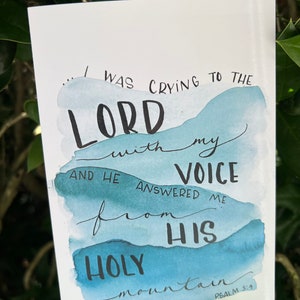 ...I WAS CRYING TO THE
LORD
with my
VOICE
AND HE ANSWERED ME
from
HIS
HOLY
mountain
PSALM 3:4